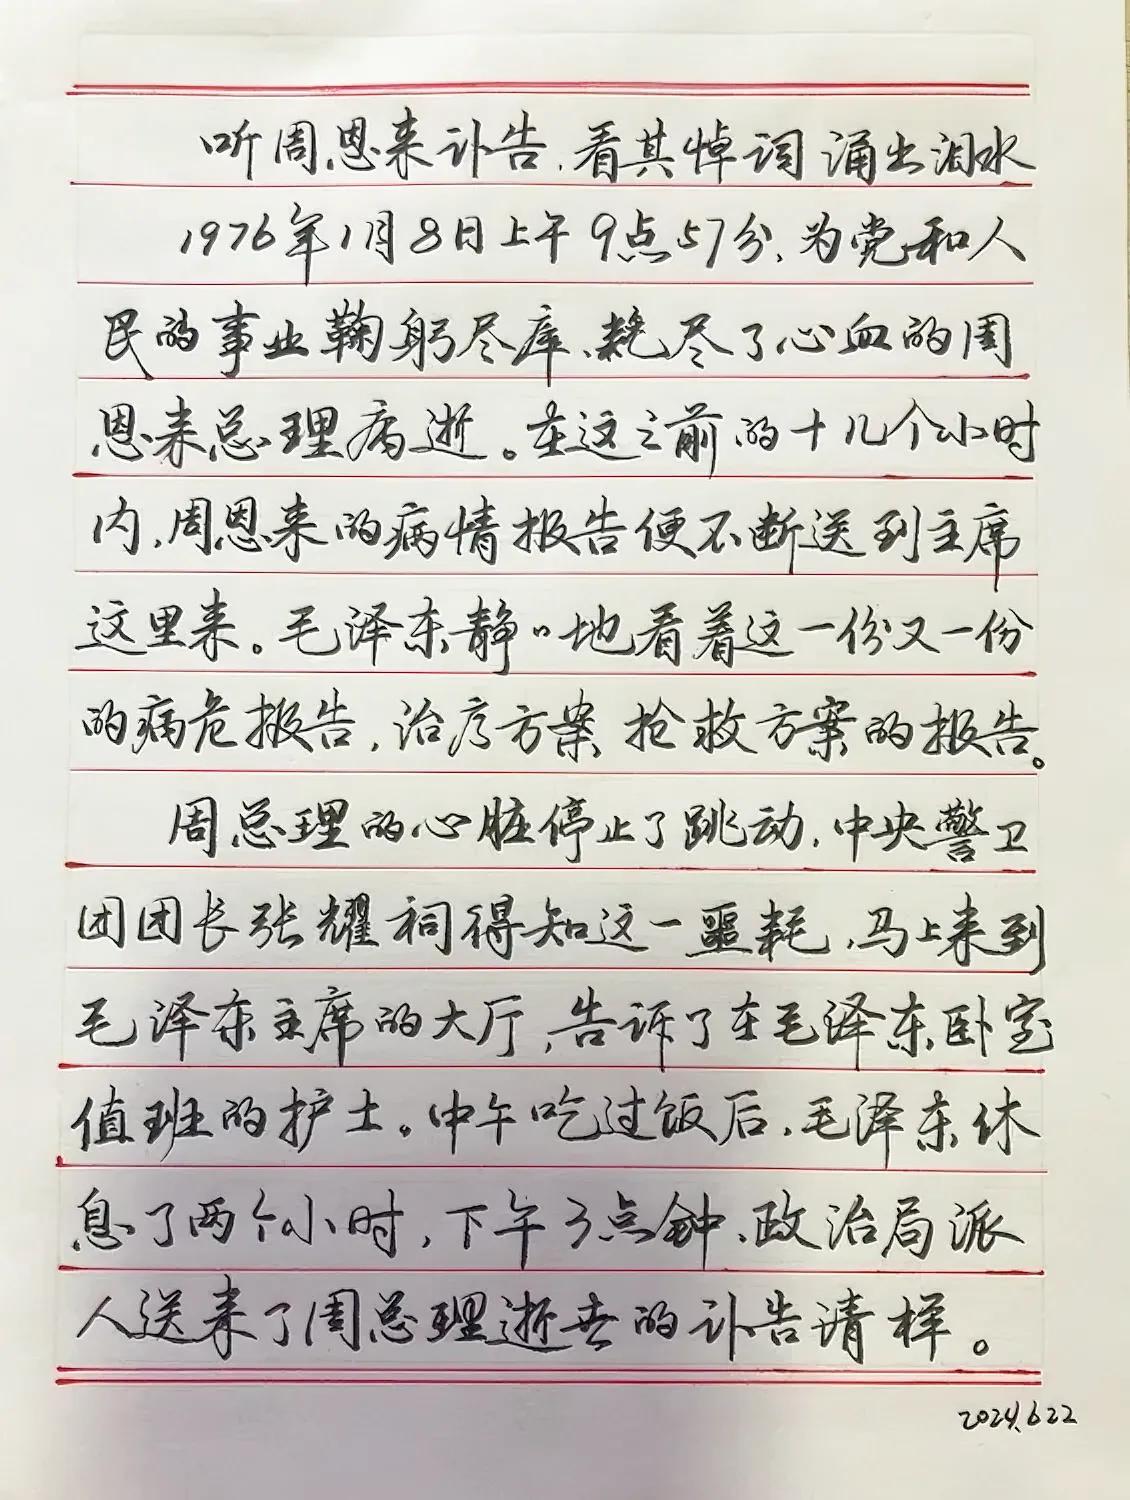 听周恩来讣告,看其悼词涌出泪水
1976年1月8日上午9点57分,为党和人
民的事业鞠躬尽瘁、耗尽了心血的周
恩来总理病逝。在这之前的十几个小时
内,周恩来的病情报告便不断送到主席
这里来。毛泽东静〃地看着这一份又一份
的病危报告,治疗方案 抢救方案的报告。
周总理的心脏停止了跳动,中央警卫
团团长张耀祠得知这一噩耗,马上来到
毛泽东主席的大厅,告诉了在毛泽东卧室
值班的护士。中午吃过饭后,毛泽东休
息了两个小时,下午3点钟,政治局派
人送来了周总理逝世的讣告请样。
2024.6.22